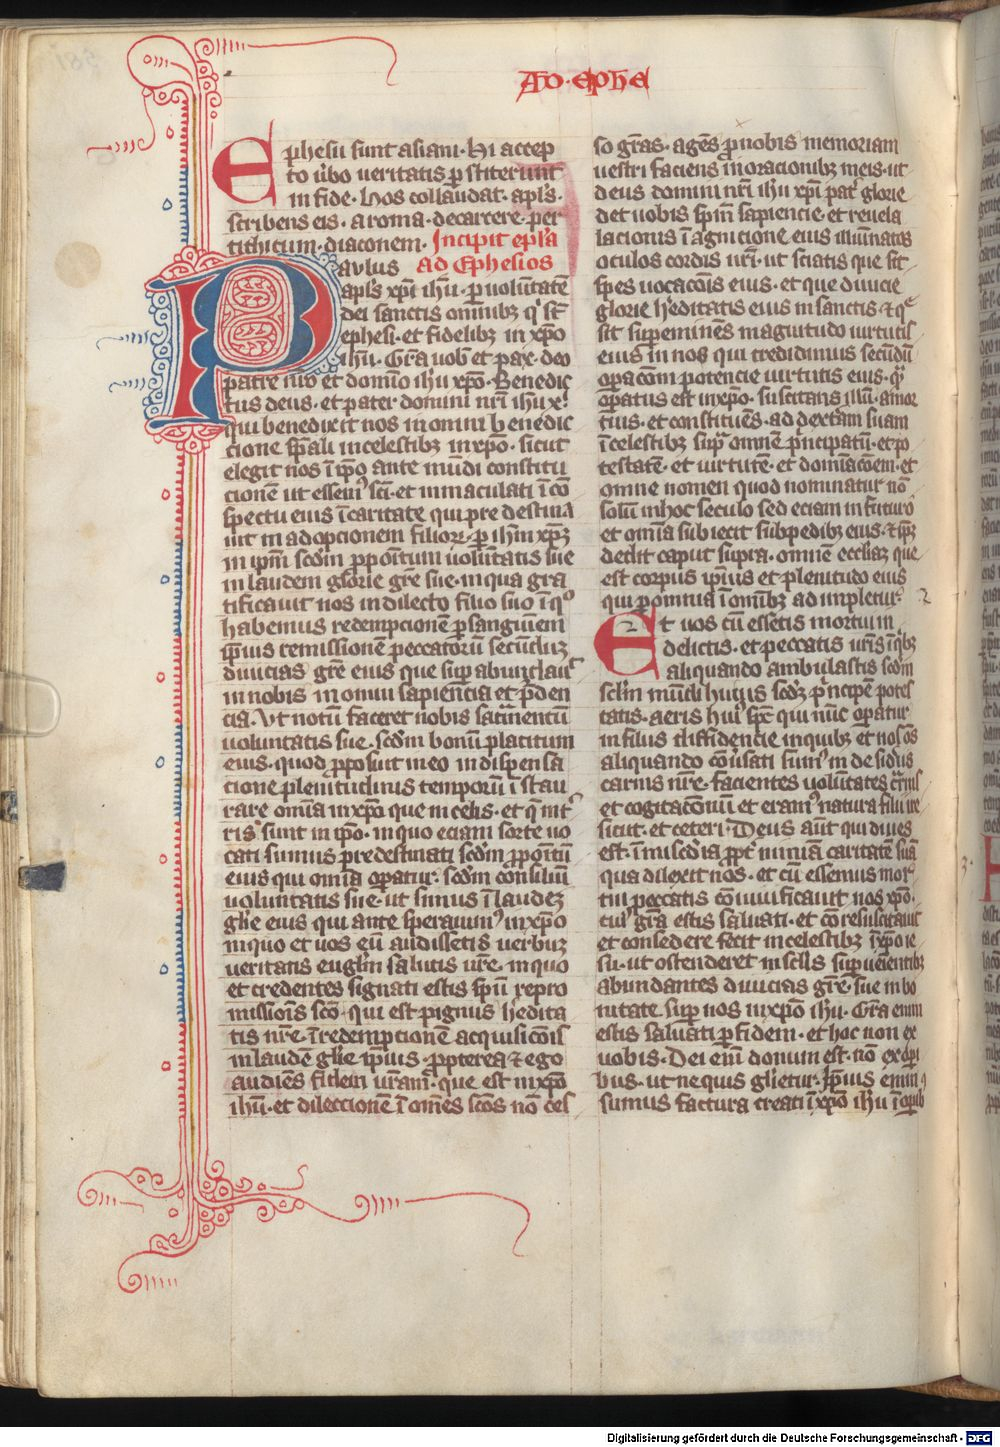 Ad ephe
Ephesii sunt asiani. Hi accep
to v̄bo veritatis ꝑstiterunt
in fide. Hos collaudat. apl̄s.
scribens eis. a roma. de carcere. per
tithicum. diaconem. Incipit ep̄la
Paulus ad Ephesios
apl̄s xp̄i ih̄u. ꝑ volūtatē
dei sanctis omnibꝫ qͥ st̄
ephesi. et fidelibꝫ in xp̄o
ih̄u. Gr̄a vob̄ et pax. deo
patre nr̄o et domīo ih̄u xp̄o. Benedic
tus deus. et pater domini nr̄i ih̄u x̄.
qui benedixit nos in omni benedic
cione sp̄ali in celestibꝫ in xp̄o. sicut
elegit nos ī ip̄o ante mūdi constitu
cionē ut essemꝰ sc̄i. et inmaculati ī cō
spectu eius ī caritate qui predestina
uit in adopcionem filioꝝ. ꝑ ih̄m xp̄ꝫ
in ip̄m scd̄m ꝓpoītum voluntatis sue
in laudem glorie gr̄e sue. in qua gra
tificauit nos in dilecto filio suo ī qͦ
habemus redempcionē ꝑ sanguinem
ip̄ius remissionē peccatorū secundꝫ
diuicias gr̄e eius que suꝑabundauᷓ
in nobis in omni sapiencia et pͥden
cia. Ut notū faceret nobis sac̄mentū
voluntatis sue. scd̄m bonū placitum
eius. quod ꝓposuit in eo in dispensa
cione plenitudinis temporū ī stau
rare om̄ia in xp̄o que in celis. et q̄ in tᷓ
ris sunt in ip̄o. in quo eciam sorte vo
cati sumus predestinati scd̄m ꝓpoītū
eius qui om̄ia oꝑatur. scd̄m consiliū
voluntatis sue. ut simus ī laudeꝫ
gl̄ie eius qui ante sperauimꝰ in xp̄o
in quo et vos cū audissetis verbuꝫ
veritatis eugl̄m salutis vr̄e. in quo
et credentes signati estis sp̄u repro
missiōis sc̄o. qui est pignus hedita
tis nr̄e. ī redempcionē acquisicōis
in laudē gl̄ie ip̄ius. ꝓpterea ⁊ ego
audiēs fidem vr̄am. que est in xp̄o
ih̄u. et dileccionē ī om̄es sc̄os nō ces
so grās. agēs ꝓ uobis memoriam
vestri faciens in oracionibꝫ meis. ut
deus domini nr̄i ih̄u xp̄i patͬ glorie
det uobis sp̄m sapiencie et reuela
lacionis ī agnicione eius illuīatos
oculos cordis vr̄i. ut sciatis que sit
spes vocacōis eius. et que diuicie
glorie hͤditatis eius in sanctis ⁊ qͤ
sit suꝑeminēs magnitudo virtutis
eius in nos qui credidimus secūdū
oꝑacōm potencie virtutis eius. qͣ
oꝑatus est in xp̄o. suscitans illū. a mor
tuis. et constituēs. ad dextam suam
ī celestibꝫ supͣ omnē pͥncipatū. et po
testatē. et virtutē. et domīacōem. et
omne nomen quod nominatur nō
solū in hoc seculo sed eciam in futuro
et om̄ia subiecit sub pedibꝫ eius. ⁊ ip̄ꝫ
dedit caput supra. omnē eccl̄iaꝫ que
est corpus ip̄ius et plenitudo eius
qui ꝑ omnia ī omībꝫ adimpletur. 2
Et vos cū essetis mortui
delictis. et peccatis vr̄is ī qͥbꝫ
aliquando ambulastis scd̄m
sclm̄ mundi huius scd̄ꝫ pͥncipē potes
tatis. aeris huiꝰ spc̄ qui nūc oꝑatur
in filius diffidencie in quibꝫ et nos oēs
aliquando cōu̓sati sumꝰ in desid̓us
carnis nr̄e. facientes volūtates carnis
et cogitacōnū et eramꝰ natura filii ire
sicut. et ceteri. Deus aūt qui diues
est. ī miscd̄ia ꝓpt̓ nimiā caritatē suā
qua dilexit nos. et cū essemus mor
tui peccatis cōuiuificauit nos xp̄o.
cuiꝰ gr̄a estis saluati. et cōresuscitauit
et consedere fecit in celestibꝫ ī xp̄o ie
su. ut ostenderet in sclis suꝑueīentibꝫ
abundantes diuicias gr̄e. sue in bo
nitate suꝑ nos in xp̄o ih̄u. Gr̄a enim
estis saluati ꝑ fidem. et hoc non ex
vobis. Dei enī donum est. nō ex oꝑi
bus. ut ne quis gl̄ietur. Ip̄ius enim
sumus factura creati ī xp̄o ih̄u ī oꝑib
3.
Digitalisierung gefördert durch die Deutsche Forschungsgemeinschaft - DFG